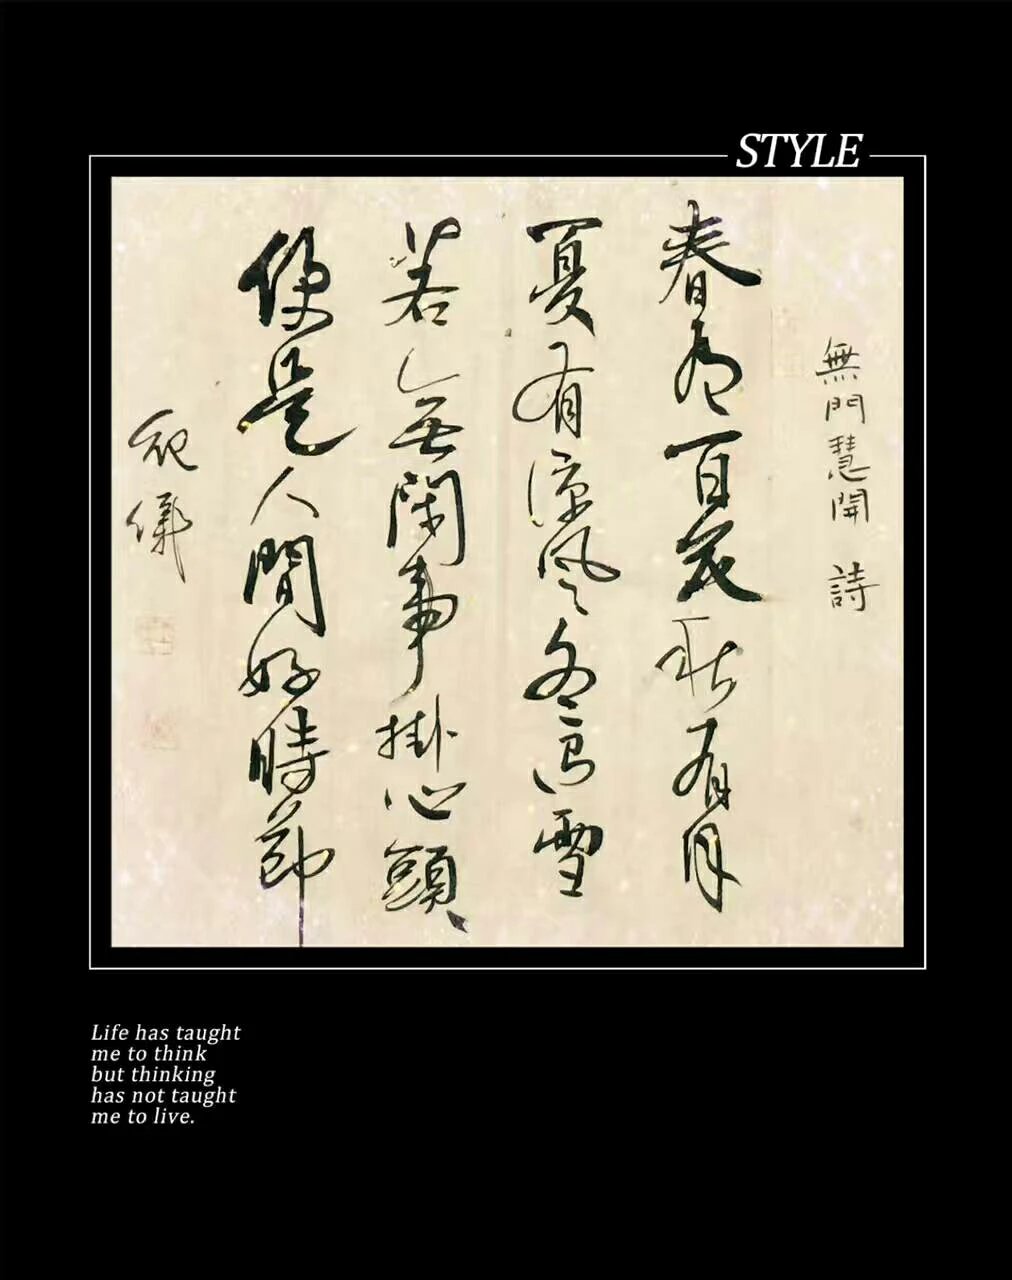 STYLE
無門慧開 詩
春有百花秋有月
夏有涼風冬有雪
若無閑事掛心頭
便是人間好時節
Life has taught
me to think
but thinking
has not taught
me to live.